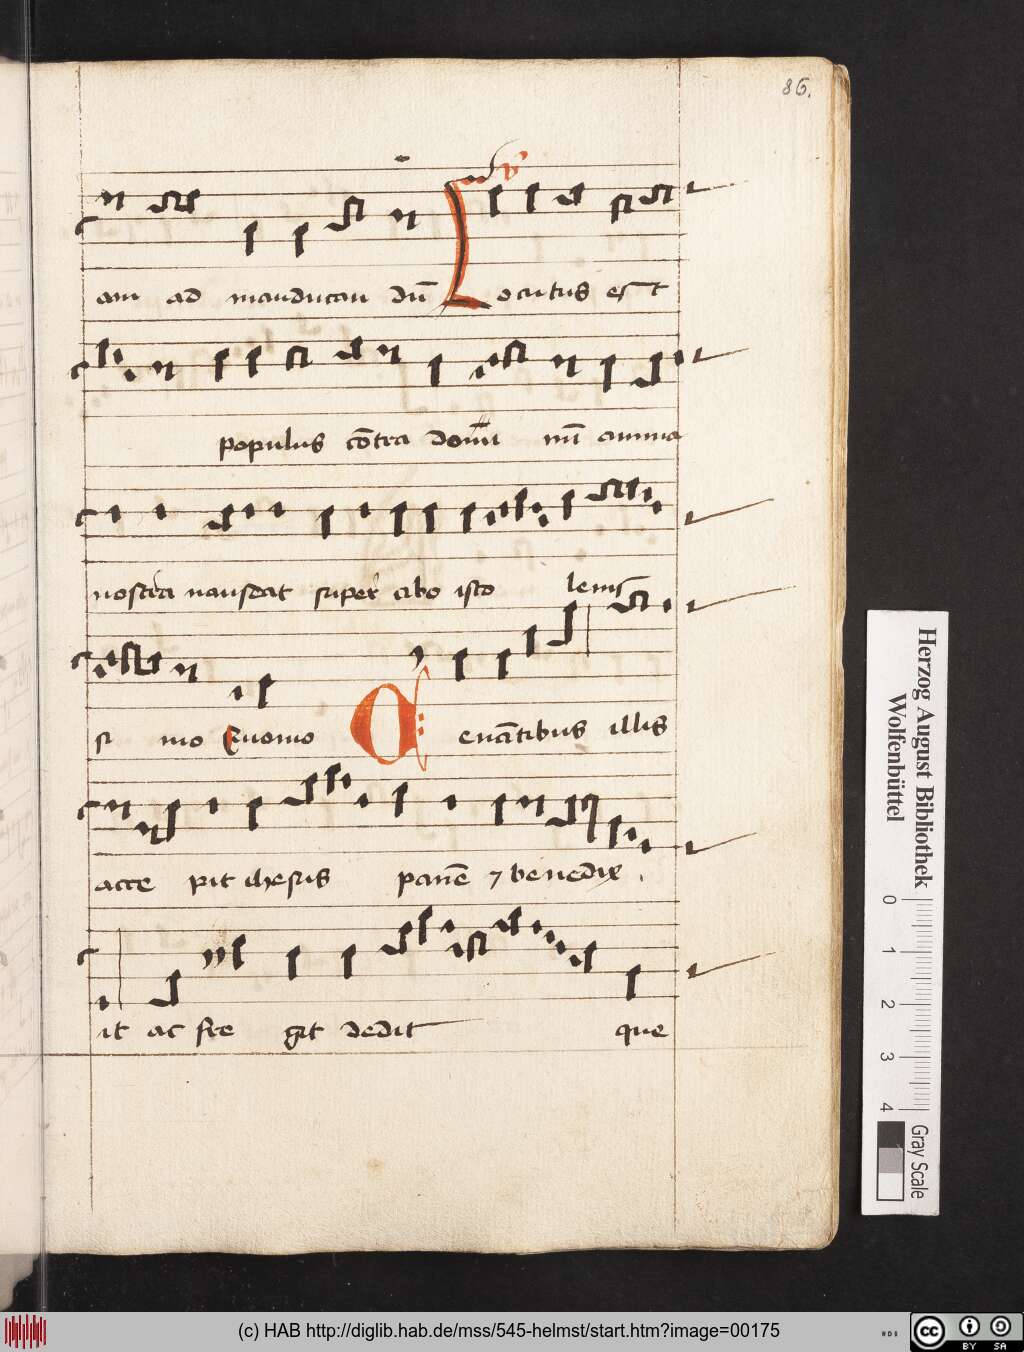 86.
am ad manducan dū Locutus est
populus cōtra domi nū anima
nostra nauseat super cibo isto leuis
si mo Euouo Cenātibus illis
acce pit ihesus panē ⁊ benedix .
it ac fre git dedit que
Herzog August Bibliothek
Wolfenbüttel
0 1 2 3 4
Gray Scale
(c) HAB http://diglib.hab.de/mss/545-helmst/start.htm?image=00175
cc BY SA